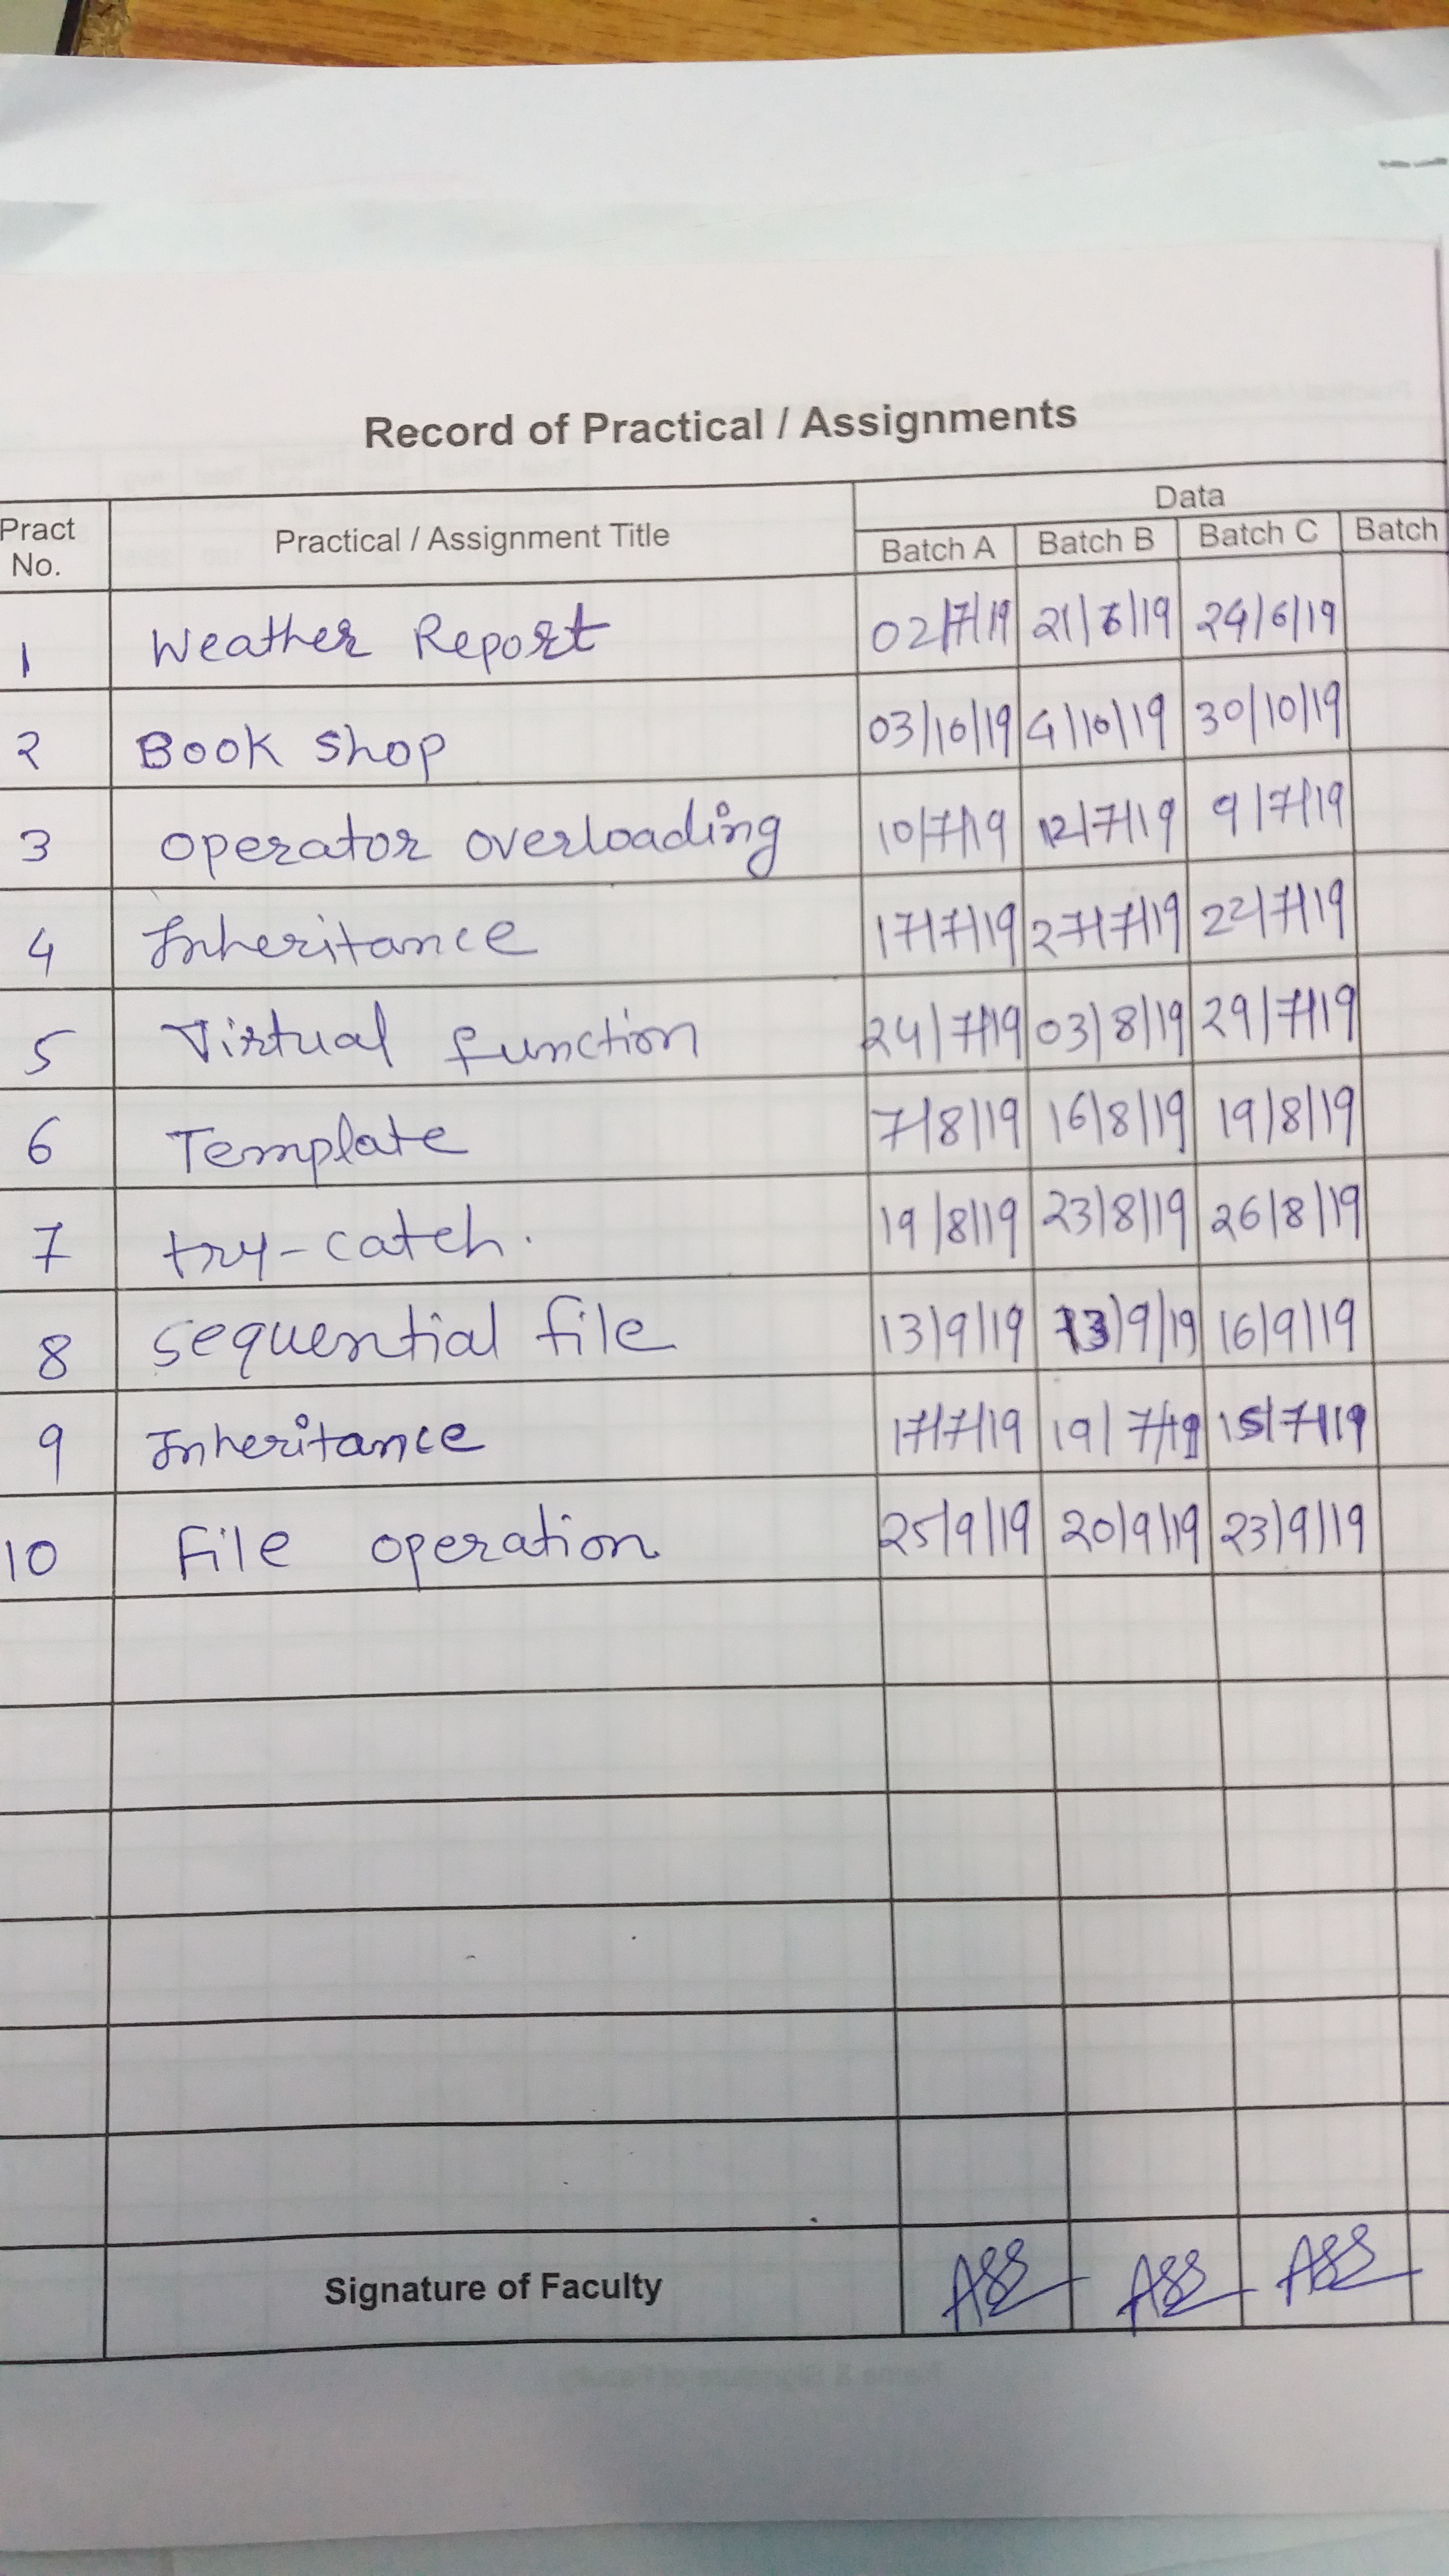 Record of Practical / Assignments
Pract No. Practical / Assignment Title Data
Batch A Batch B Batch C Batch
1 Weather Report 02/7/19 21/6/19 24/6/19
2 Book shop 03/10/19 4/10/19 30/10/19
3 operator overloading 10/7/19 12/7/19 9/7/19
4 Inheritance 17/7/19 27/7/19 22/7/19
5 Virtual function 24/7/19 03/8/19 29/7/19
6 Template 7/8/19 16/8/19 19/8/19
7 try-catch. 19/8/19 23/8/19 26/8/19
8 sequential file 13/9/19 13/9/19 16/9/19
9 Inheritance 17/7/19 19/7/19 15/7/19
10 File operation 25/9/19 20/9/19 23/9/19
Signature of Faculty